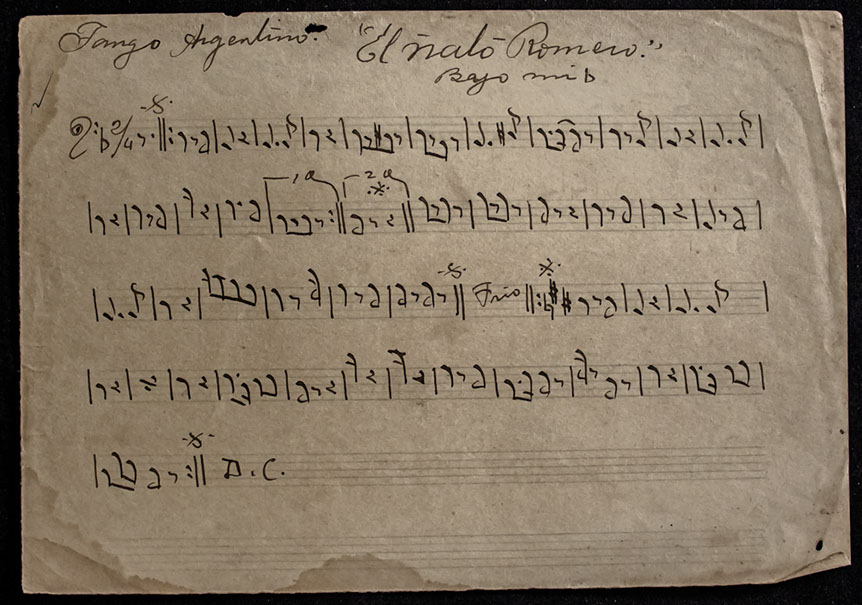 Tango Argentino. "El ñato Romero."
Bajo mi b
2/4
1a 2a
Trio
D. C.